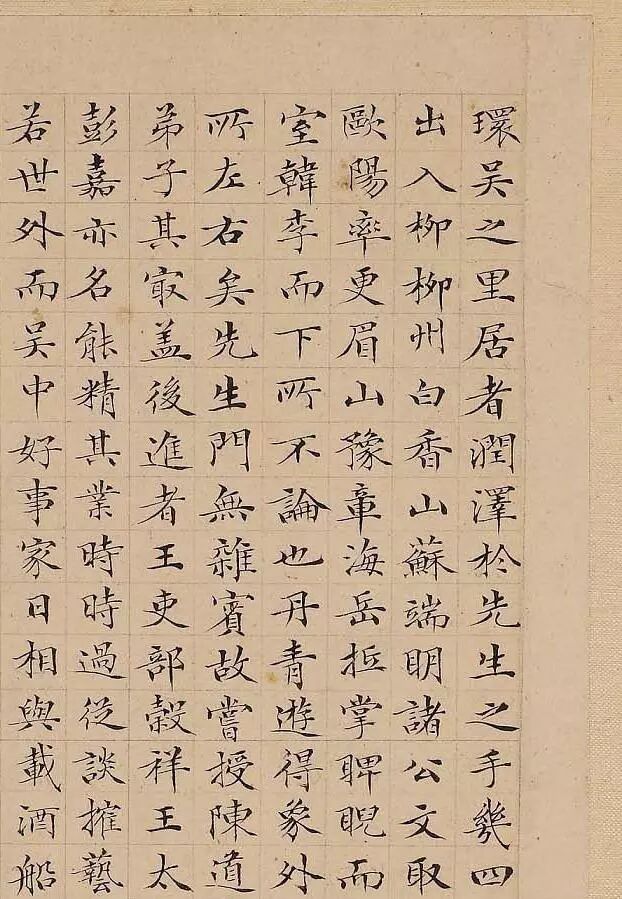 環吴之里居者潤澤於先生之手幾四
出入柳柳州白香山蘇端明諸公文取
歐陽率更眉山豫章海岳抵掌睥睨而
室韓李而下所不論也丹青遊得象外
所左右矣先生門無雜賓故嘗授陳道
弟子其㝡盖後進者王吏部穀祥王太
彭嘉亦名能精其業時時過從談搉藝
若世外而吴中好事家日相與載酒船